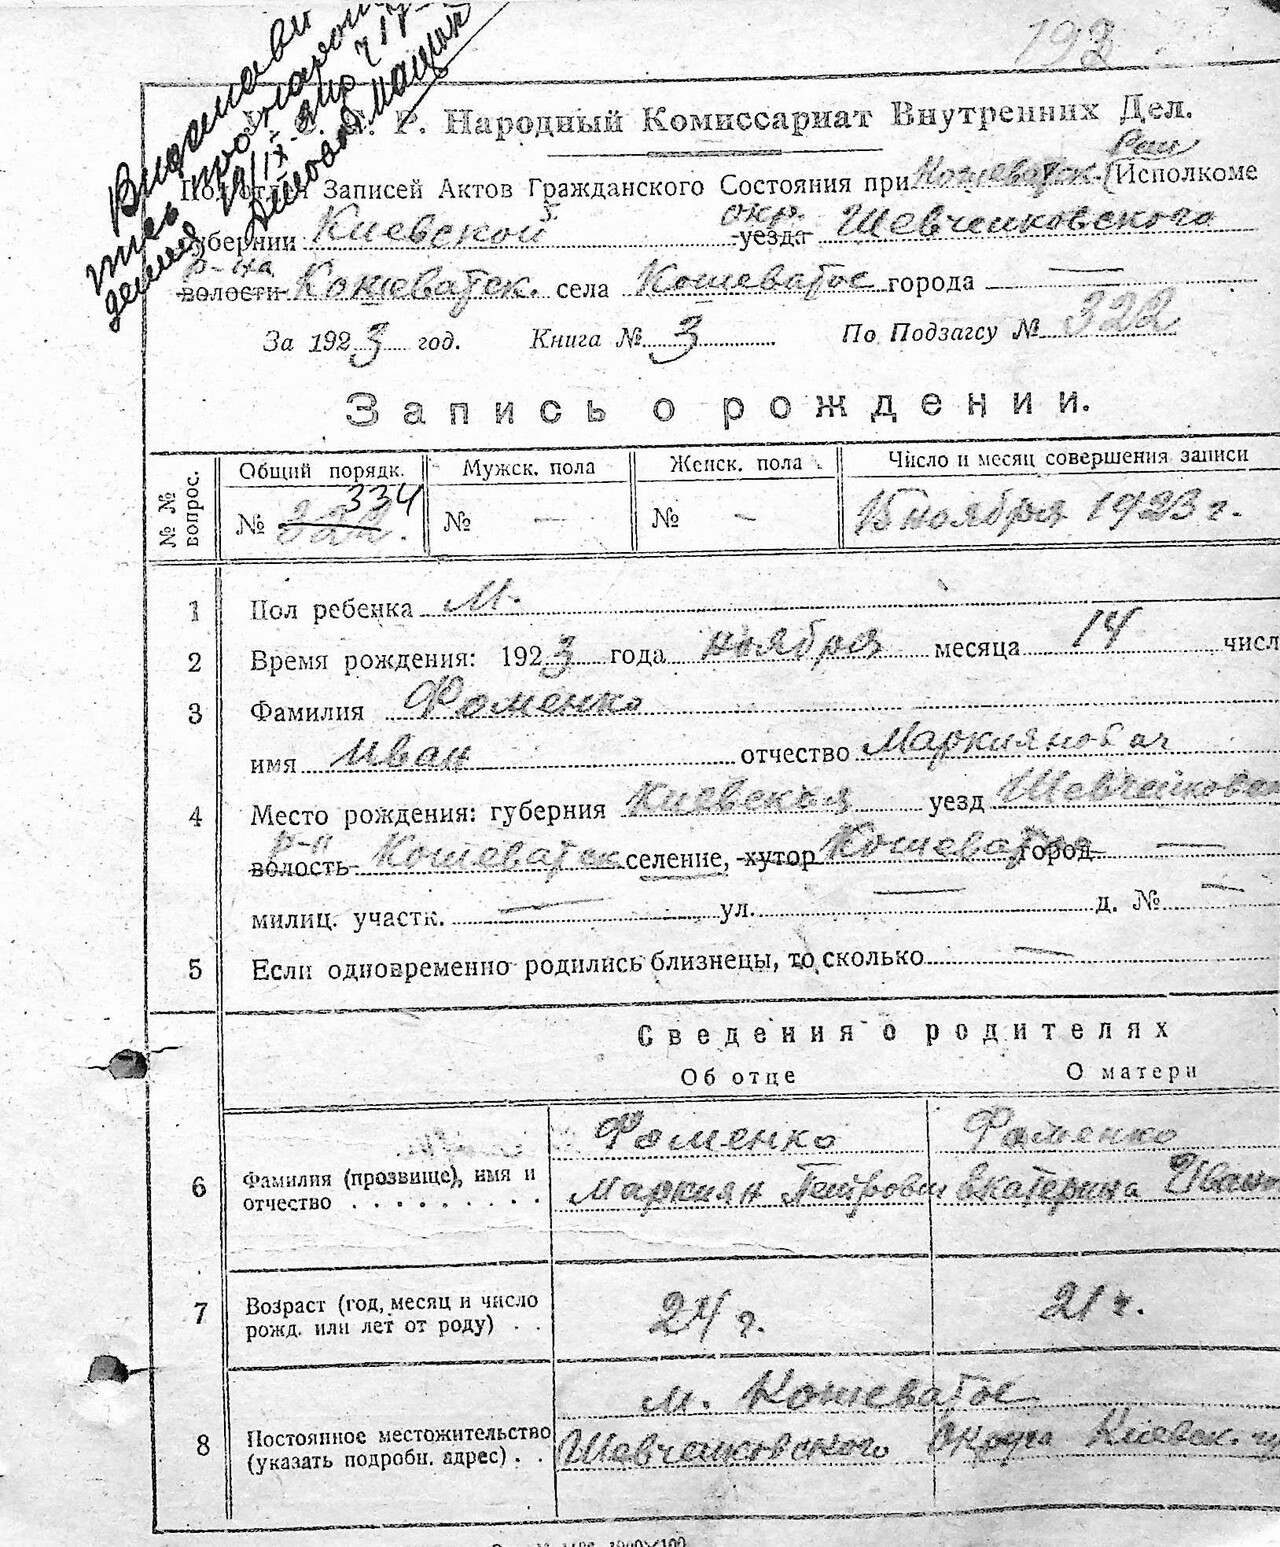 193
Р. Народный Комиссариат Внутренних Дел.
Рай
Записей Актов Гражданского Состояния при Кошеватск. Исполкоме
губернии Киевской окр. уезда Шевченковского
р-на
волости Кошеватск. села Кошеватое города —
За 1923 год. Книга № 3 По Подзагсу № 322
Запись о рождении.
№ № вопрос.
Общий порядк. Мужск. пола Женск. пола Число и месяц совершения записи
334
№ 322. № — № — 15 ноября 1923 г.
1 Пол ребенка М.
2 Время рождения: 1923 года ноября месяца 14 числ
3 Фамилия Фоменко
имя Иван отчество Маркиянович
4 Место рождения: губерния Киевская уезд Шевченковск
р-н
волость Кошеватск селение, хутор Кошеватое город —
милиц. участк. — ул. — д. № —
5 Если одновременно родились близнецы, то сколько —
Сведения о родителях
Об отце О матери
Фоменко Фоменко
6 Фамилия (прозвище), имя и отчество . . . . . . . . Маркиян Петрович Екатерина Иван
7 Возраст (год, месяц и число рожд. или лет от роду) . . 24 г. 21 г.
м. Кошеватое
8 Постоянное местожительство (указать подробн. адрес) . . Шевченковского Округа Киевск. г